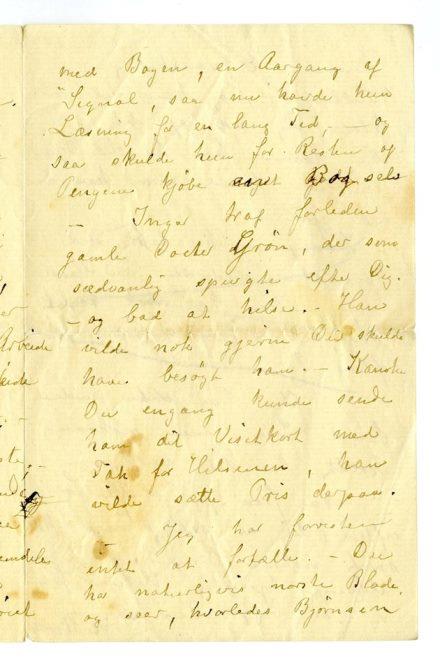 med Bogen, en Aargang af
"Signal, saa nu havde hun
Læsning for en lang Tid, — og
saa skulde hun for Resten af
Pengene kjøbe selv
— Inga traf forleden
gamle Doctor Grøn, der som
sædvanlig spurgte efter Dig.
— og bad at hilse. — Han
vilde nok gjerne Du skulde
have besøgt ham. — Kanske
Du engang kunde sende
ham dit Visitkort med
Tak for Hilsenen, han
vilde sætte Pris derpaa.
— Jeg har forresten
intet at fortælle. — Du
har naturligvis norske Blade,
og seer, hvorledes Bjørnson
Arbeide